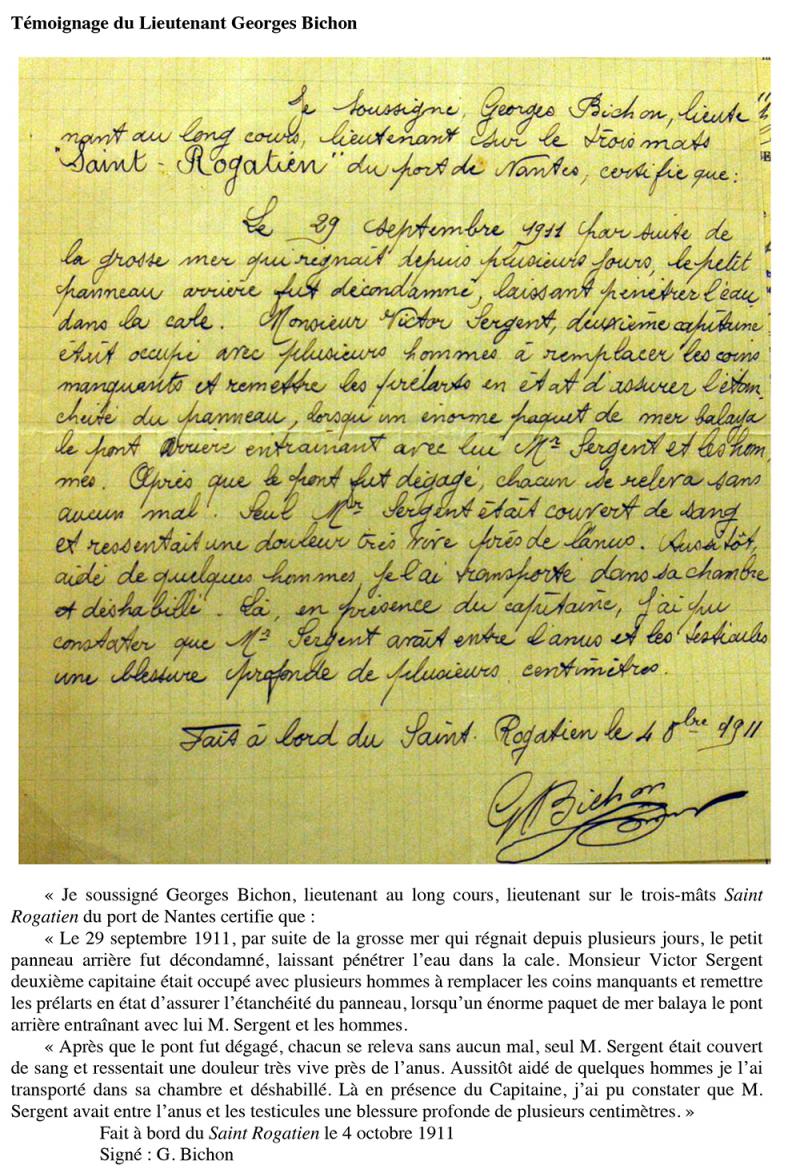 Témoignage du Lieutenant Georges Bichon
Je soussigné, Georges Bichon, lieute
nant au long cours, lieutenant sur le trois mats
"Saint - Rogatien" du port de Nantes, certifie que :
Le 29 septembre 1911 par suite de
la grosse mer qui régnait depuis plusieurs jours, le petit
panneau arrière fut décondamné, laissant pénétrer l'eau
dans la cale. Monsieur Victor Sergent, deuxième capitaine
était occupé avec plusieurs hommes à remplacer les coins
manquants et remettre les prélarts en état d'assurer l'étan-
cheité du panneau, lorsqu'un énorme paquet de mer balaya
le pont arriere entrainant avec lui Mr Sergent et les hom
mes. Après que le pont fut dégagé, chacun se releva sans
aucun mal. Seul Mr Sergent était couvert de sang
et ressentait une douleur très vive près de l'anus. Aussitôt,
aidé de quelques hommes, je l'ai transporté dans sa chambre
et déshabillé. Là, en présence du capitaine, j'ai pu
constater que Mr Sergent avait entre l'anus et les testicules
une blessure profonde de plusieurs centimètres.
Fait à bord du Saint. Rogatien le 4 8bre 1911
G Bichon
« Je soussigné Georges Bichon, lieutenant au long cours, lieutenant sur le trois-mâts Saint
Rogatien du port de Nantes certifie que :
« Le 29 septembre 1911, par suite de la grosse mer qui régnait depuis plusieurs jours, le petit
panneau arrière fut décondamné, laissant pénétrer l'eau dans la cale. Monsieur Victor Sergent
deuxième capitaine était occupé avec plusieurs hommes à remplacer les coins manquants et remettre
les prélarts en état d'assurer l'étanchéité du panneau, lorsqu'un énorme paquet de mer balaya le pont
arrière entraînant avec lui M. Sergent et les hommes.
« Après que le pont fut dégagé, chacun se releva sans aucun mal, seul M. Sergent était couvert
de sang et ressentait une douleur très vive près de l'anus. Aussitôt aidé de quelques hommes je l'ai
transporté dans sa chambre et déshabillé. Là en présence du Capitaine, j'ai pu constater que M.
Sergent avait entre l'anus et les testicules une blessure profonde de plusieurs centimètres. »
Fait à bord du Saint Rogatien le 4 octobre 1911
Signé : G. Bichon